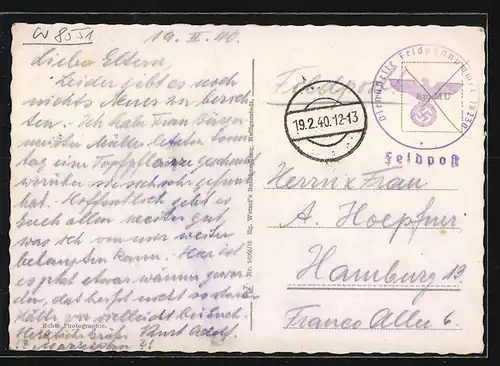 W 8051
19. II. 40.
Liebe Eltern,
Leider gibt es noch
nichts Neues zu berich
ten. Ich hatte Frau Bürger
meister Müller letzten Sonn
tag eine Topfpflanze geschenkt
worüber sie sich sehr gefreut
hat. Hoffentlich geht es
Euch allen weiter gut,
was ich von mir weiter
behaupten kann. Hier ist
es jetzt etwas wärmer gewor
den, das heißt nicht so starke
Kälte wie vielleicht bei Euch.
Herzliche Grüße Kurt Adolf.
Echte Photographie
Feldpost
19.2.40.12-13
Dienststelle Feldpostnummer
Feldpost
Herrn u. Frau
A. Hoepfner
Hamburg 13
Franco Allee 6.